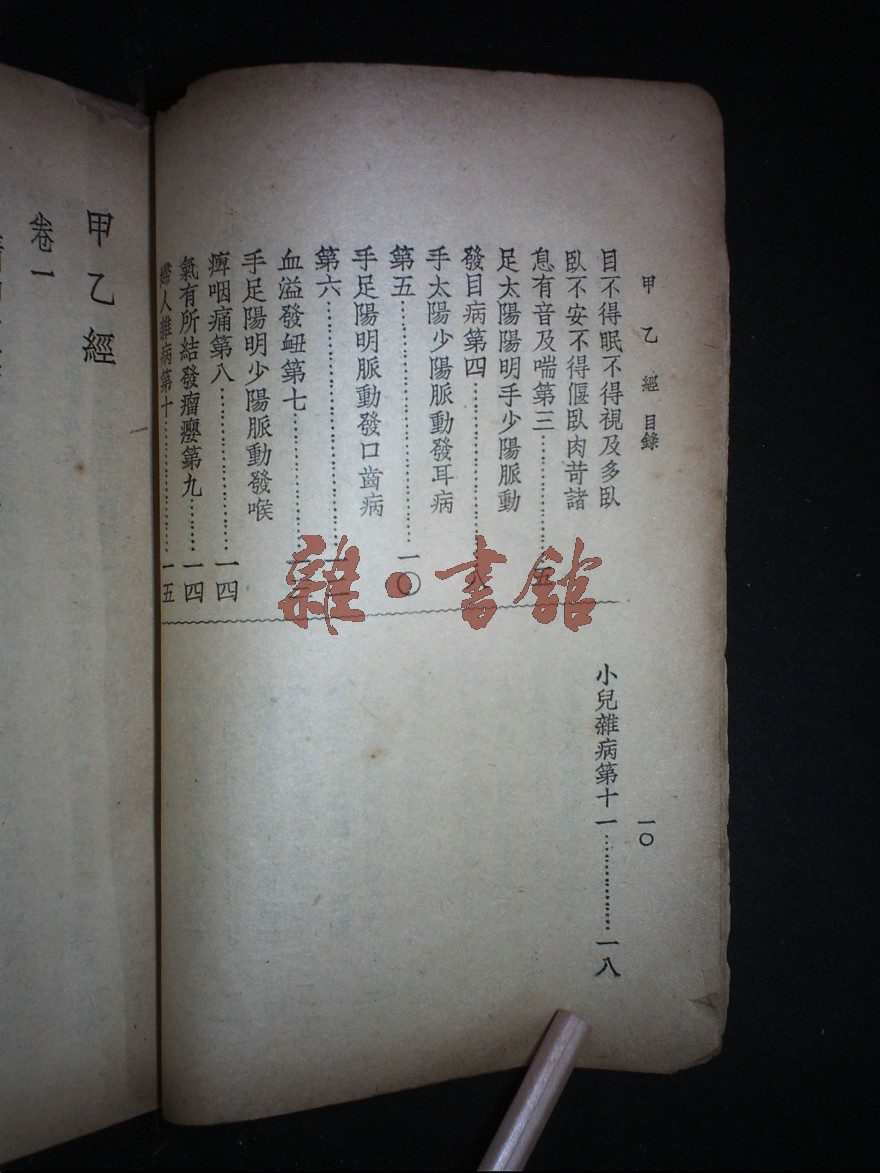 甲乙經 目錄
一〇
目不得眠不得視及多臥
臥不安不得偃臥肉苛諸
息有音及喘第三………………五
足太陽陽明手少陽脈動
發目病第四………………八
手太陽少陽脈動發耳病
第五………………一〇
手足陽明脈動發口齒病
第六………………
血溢發衄第七………………
手足陽明少陽脈動發喉
痺咽痛第八………………一四
氣有所結發瘤癭第九………一四
婦人雜病第十………………一五
小兒雜病第十一………………一八
甲乙經
卷一
雜·書館